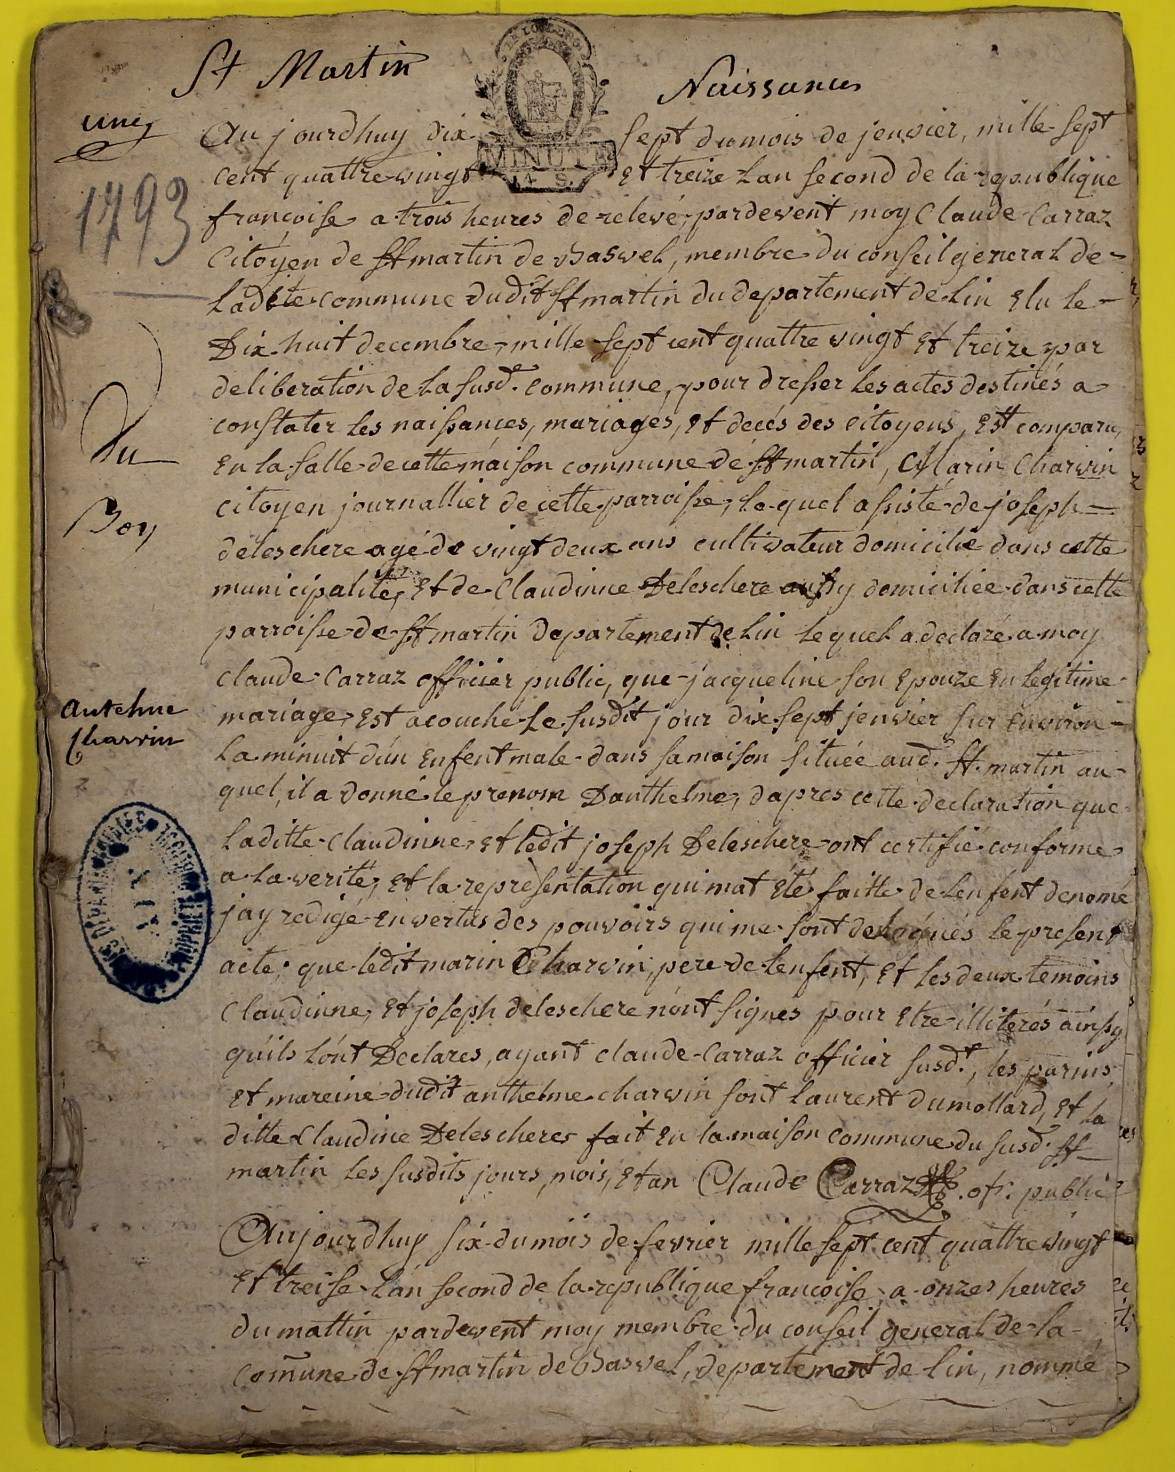 St Martin
Naissances
MINUTE
4 S.
1793
Au jourdhuy dix sept du mois de jenvier, mille sept
cent quattre vingt et treize Lan second de la republique
françoise a trois heures de relevé, pardevent moy Claude Carraz
Citoyen de st martin de Bavel, membre du conseil general de
Ladite commune dudit st martin du departement de Lin Elu le
Dix huit decembre, mille sept cent quattre vingt et treize par
deliberation de la susd.te commune, pour dresser Les actes destinés a
constater Les naissances, mariages, et decés des citoyens, Est comparu
En la salle de cette maison commune de st martin, Marin Charvin
citoyen journallier de cette parroisse, lequel assisté de joseph
deleschere agé de vingt deux ans cultivateur domicilié dans cette
municipalité, Et de Claudinne Deleschere aussy domiciliée dans cette
parroisse de st martin departement de Lin Lequel a declaré a moy
Claude Carraz officier public, que jacqueline son Epouze En legitime
mariage, est acouché Le susdit jour dix sept jenvier sur Environ
La minuit d'un Enfent male dans sa maison située aud.t st martin au
quel, il a donné le prenom Danthelme, dapres cette declaration que
Laditte Claudinne, et ledit joseph Deleschere ont certifié conforme
a La verité, et la représentation qui mat été faitte de Lenfent denomé
jay redigé en vertus des pouvoirs qui me sont delégués le present
acte, que ledit marin Charvin, pere de Lenfent, Et Les deux temoins
Claudinne, Et joseph deleschere n'ont signés pour Etre illiterés ainsy
quils L'ont Declarés, ayant claude Carraz officier susd.t, les parins,
Et mareine dudit anthelme charvin sont Laurent Dumollard, Et La
ditte Claudine Deleschere fait En la maison commune du susd.t st
martin Les susdits jours, mois, Et an Claude Carraz of. public
Antelme
Charvin
Aujourdhuy six du mois de fevrier mille sept cent quattre vingt
Et treise Lan second de la republique francoise a onzes heures
du mattin pardevent moy membre du conseil general de la
comune de st martin de Bavel, departement de Lin, nommé